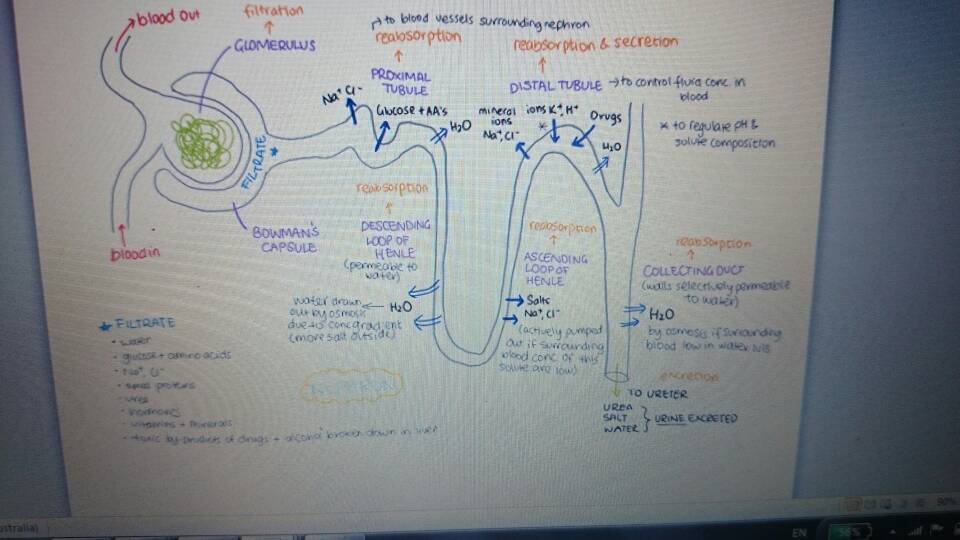 blood out
filtration
GLOMERULUS
to blood vessels surrounding nephron
reabsorption
PROXIMAL
TUBULE
Na⁺ Cl⁻
Glucose + AA's
H₂O
reabsorption & secretion
DISTAL TUBULE → to control fluid conc. in
blood
mineral
ions
Na⁺, Cl⁻
ions K⁺, H⁺
*
Drugs
H₂O
* to regulate pH &
solute composition
FILTRATE
BOWMAN'S
CAPSULE
blood in
reabsorption
DESCENDING
LOOP OF
HENLE
(permeable to
water)
water drawn ← H₂O
out by osmosis
due to conc gradient
(more salt outside)
reabsorption
ASCENDING
LOOP OF
HENLE
Salts
Na⁺, Cl⁻
(actively pumped
out if surrounding
blood conc of this
solute are low)
reabsorption
COLLECTING DUCT
(walls selectively permeable
to water)
H₂O
by osmosis if surrounding
blood low in water
excretion
TO URETER
UREA
SALT
WATER
URINE EXCRETED
NEPHRON
★ FILTRATE
• water
• glucose + amino acids
• Na⁺, Cl⁻
• small proteins
• urea
• hormones
• vitamins + minerals
• toxic by-products of drugs + alcohol broken down in liver
ustralia)
EN
56%
90%